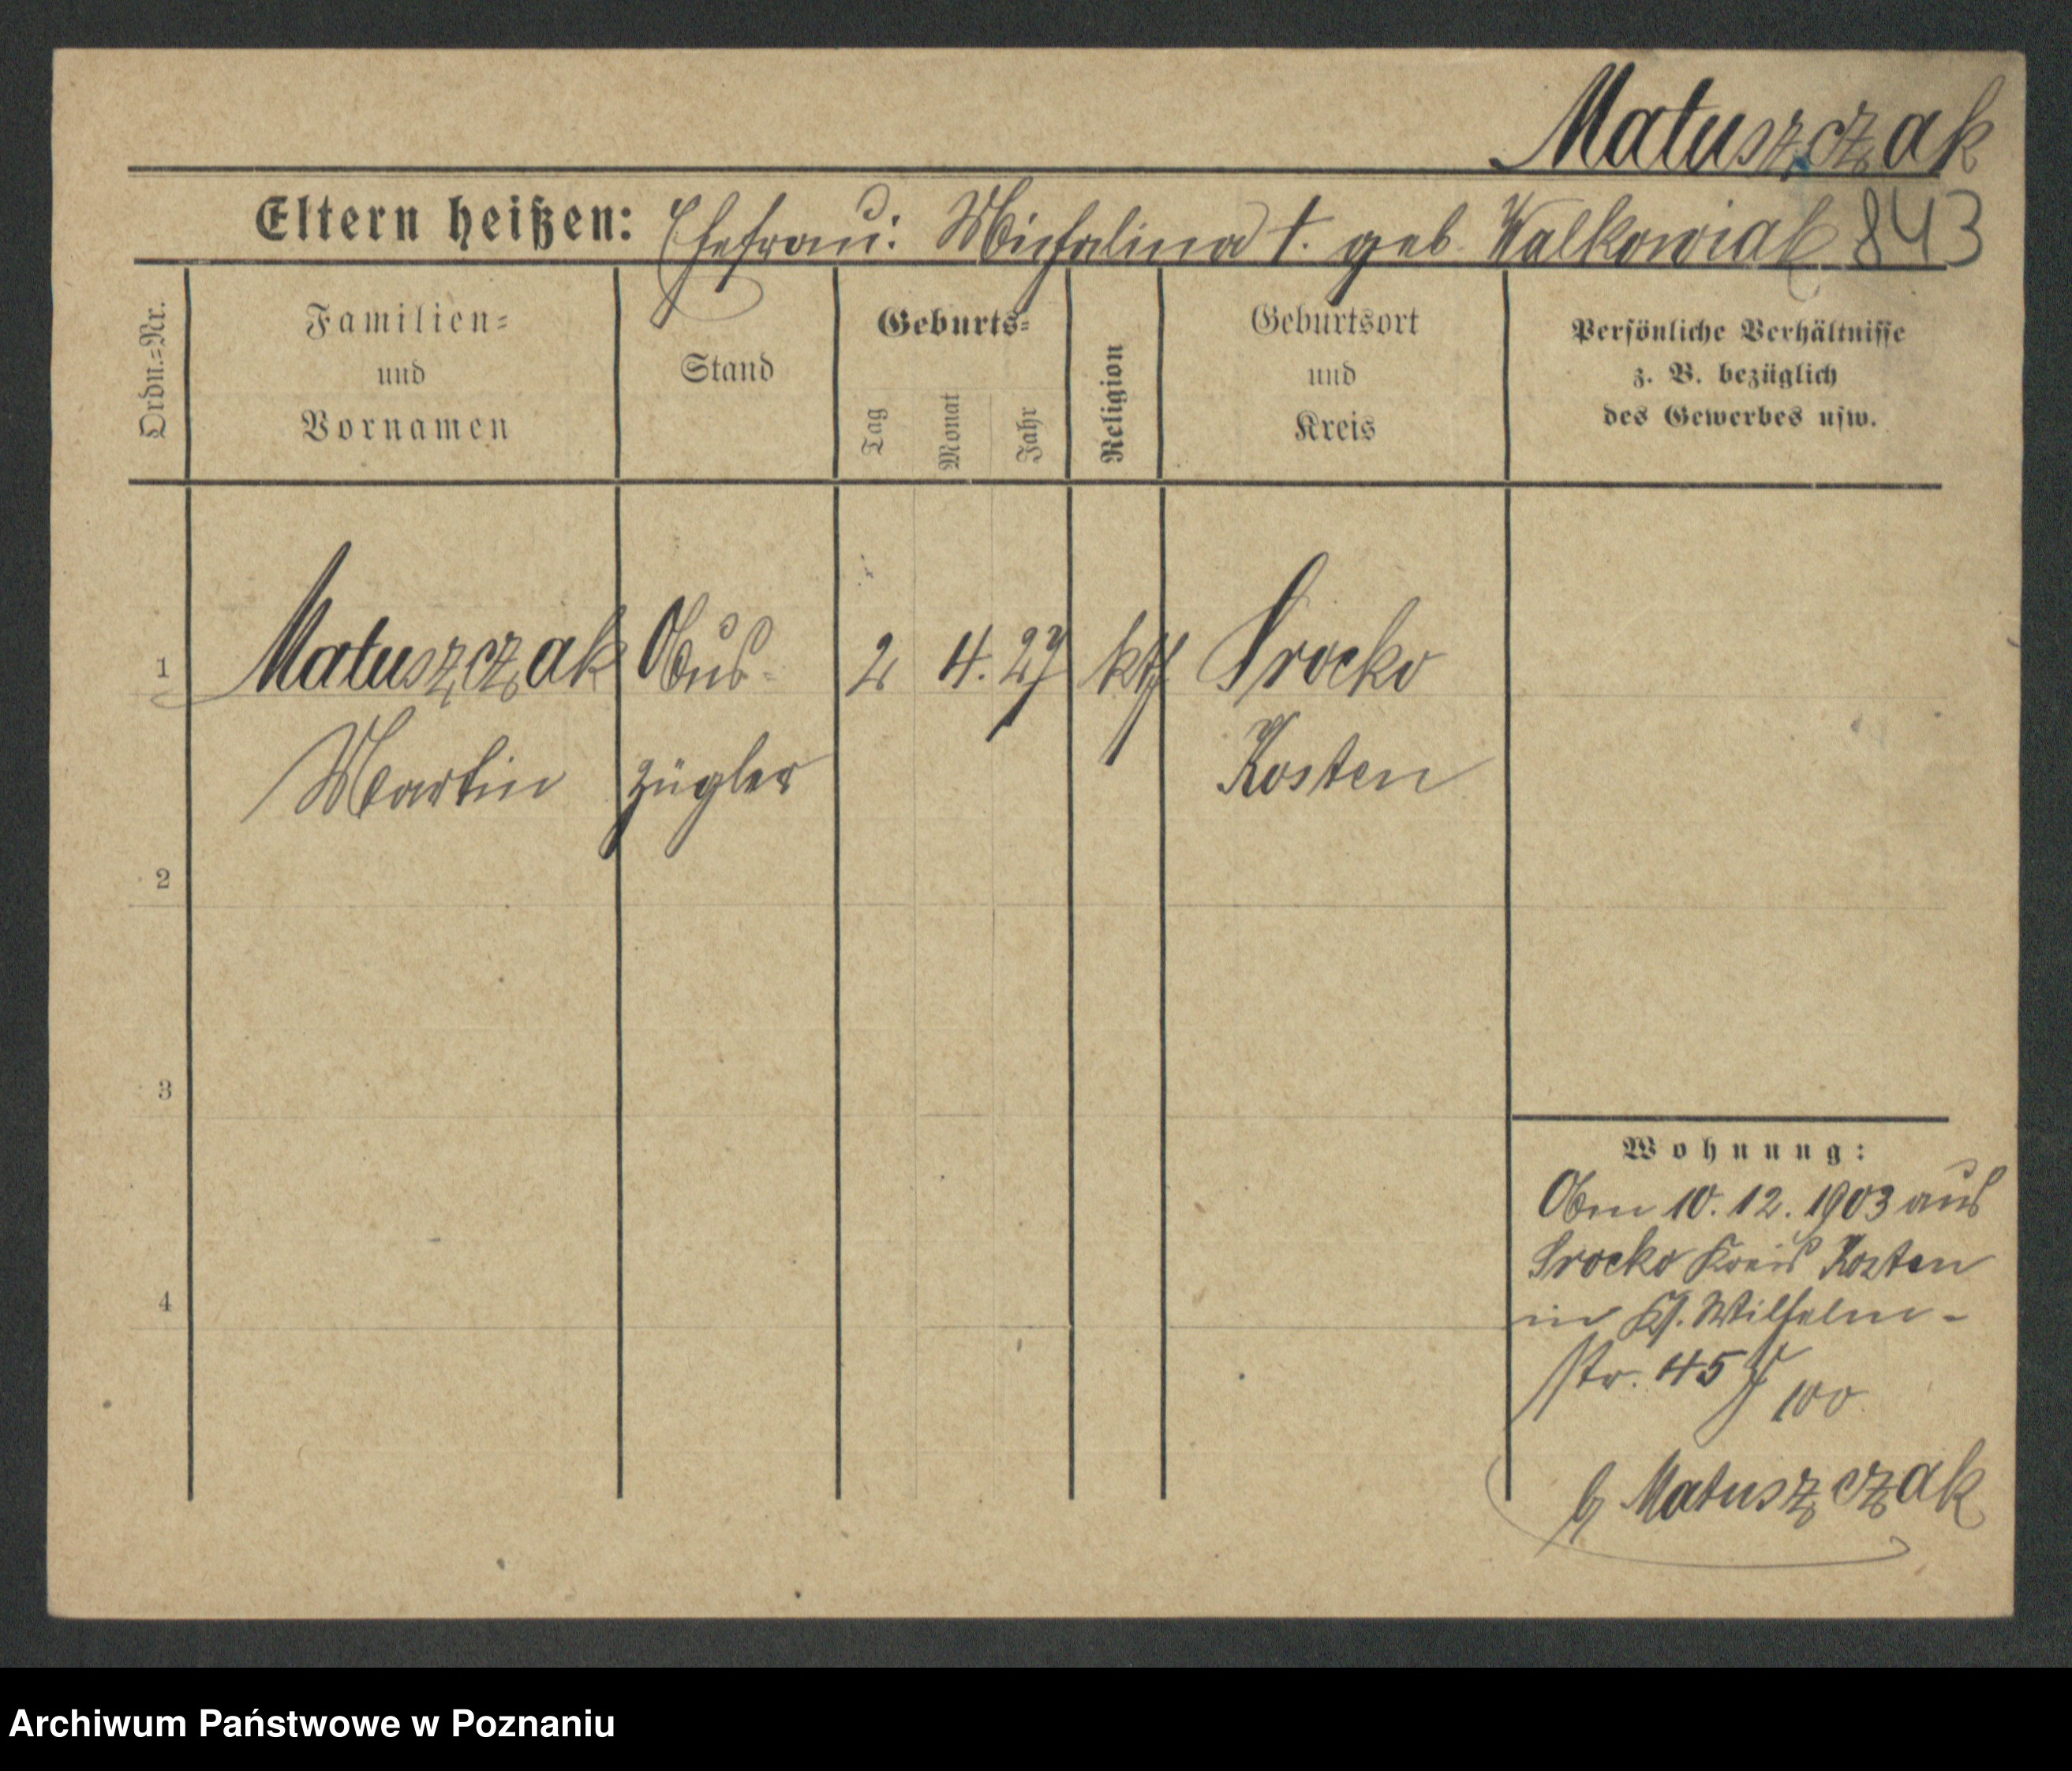 Matuszczak
Eltern heißen: Ehefrau: Michalina †. geb Walkowiak 843
Ordn.=Nr.
Familien=
und
Vornamen
Stand
Geburts=
Tag
Monat
Jahr
Religion
Geburtsort
und
Kreis
Persönliche Verhältnisse
z. B. bezüglich
des Gewerbes usw.
1 Matuszczak Aus= 2 4. 27 kth Srocko
Martin zügler Kosten
2
3
4
Wohnung:
Am 10. 12. 1903 aus
Srocko Kreis Kosten
in Ks. Wilhelm-
str. 45
100
b/ Matuszczak
Archiwum Państwowe w Poznaniu